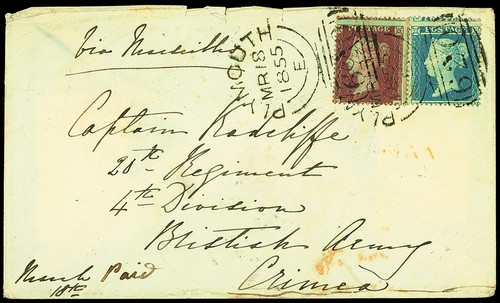 Via Marseilles
PLYMOUTH
MR 18
1855
E
POSTAGE
POSTAGE
620
PLY
Captain Radcliffe
20th Regiment
4th Division
British Army
Crimea
March Paid
18th